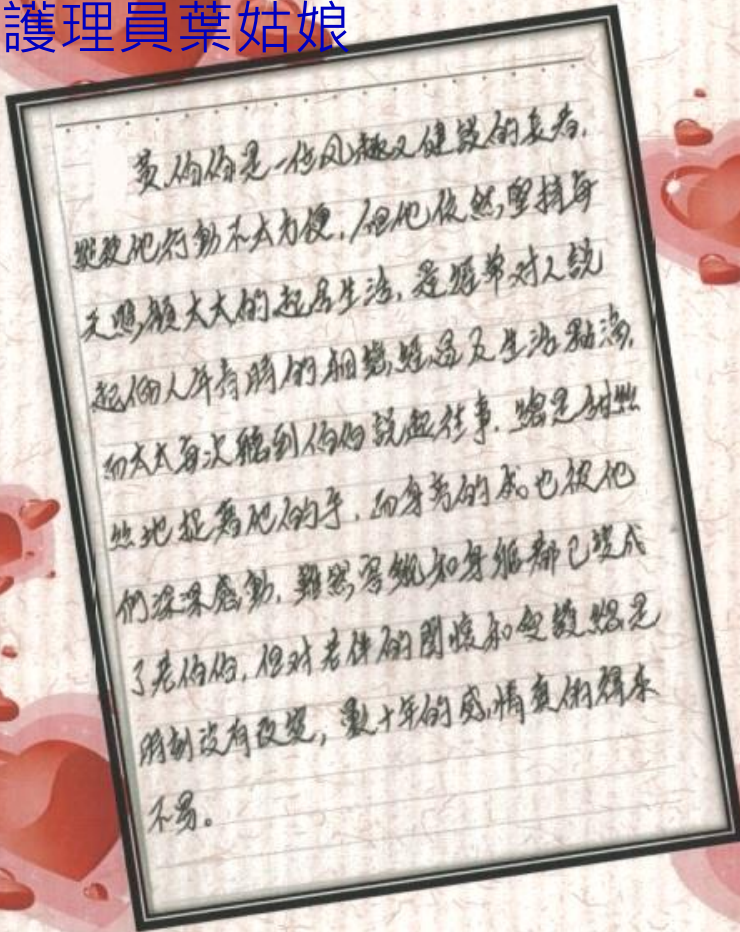 護理員葉姑娘
黃伯伯是一位风趣又健談的長者,
縱使他行動不太方便,但他依然堅持每
天照顧太太的起居生活,還經常对人說
起倆人年青時的相戀經過及生活點滴,
而太太每次聽到伯伯說起往事,總是甜絲
絲地捉著他的手,而身旁的我也被他
們深深感動,雖然容貌和身軀都已變成
了老伯伯,但对老伴的關懷和愛護總是
時刻沒有改變,數十年的感情真的得來
不易。